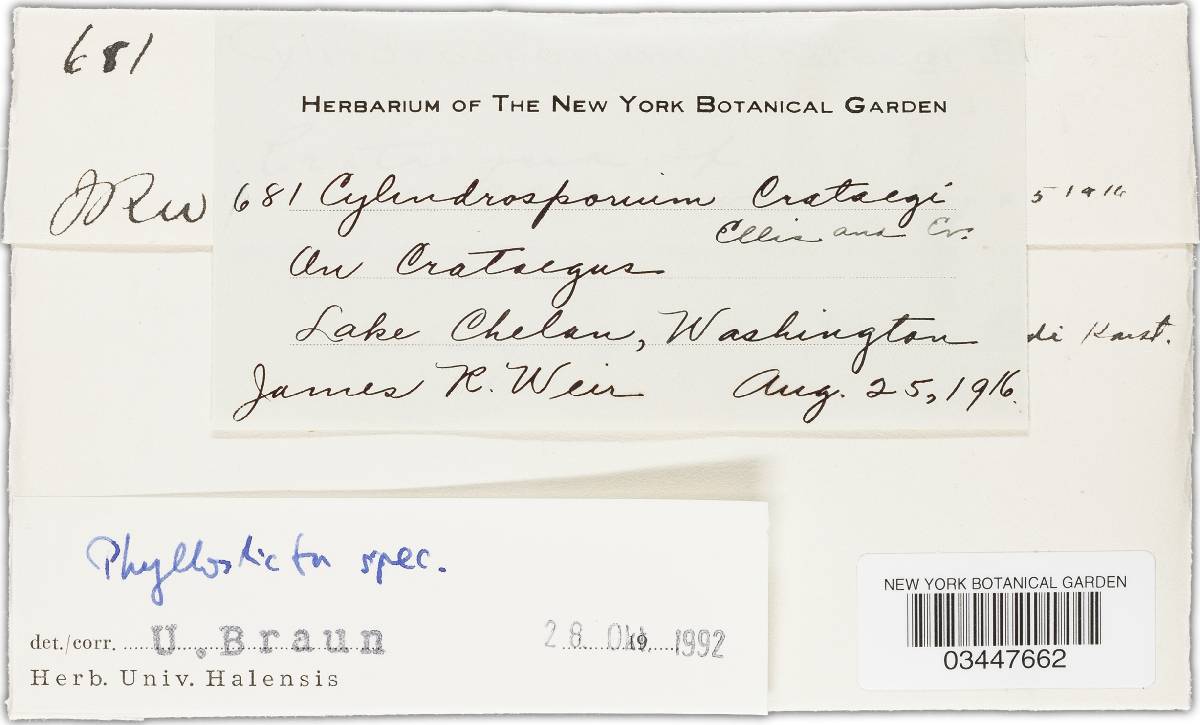 681
HERBARIUM OF THE NEW YORK BOTANICAL GARDEN
JRW 681 Cylindrosporium Crataegi
Ellis and Ev.
5 1916
On Crataegus
Lake Chelan, Washington
di Karst.
James R. Weir Aug. 25, 1916.
Phyllosticta spec.
det./corr. U. Braun 28. Okt. 19 1992
Herb. Univ. Halensis
NEW YORK BOTANICAL GARDEN
03447662